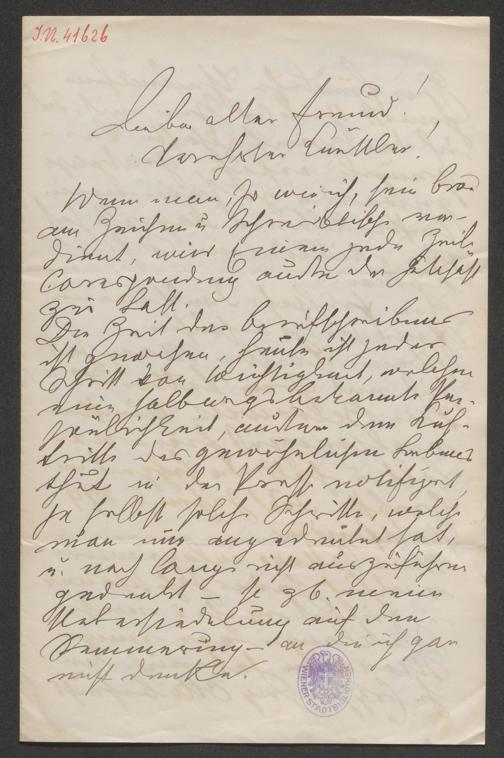 I.N. 41626
Lieber alter Freund!
Verehrter Künstler!
Wenn man, so wie ich, sein Brod
am Zeichen u Schreibtische ver-
dient, wird Einem jede Zeile
Corespondenz außer der Geschäfte
zur Last.
Die Zeit des Briefschreibens
ist gewesen, heute ist jeder
Schritt von Wichtigkeit, welchen
eine halbwegs bekannte Per-
sönlichkeit, außer dem Auf-
tritte des gewöhnlichen Lebens
thut in der Presse notifizirt,
ja selbst solche Schritte, welche
man nur angedeutet hat,
u. noch lange nicht auszuführen
gedenkt – so z b. meine
Uebersiedelung auf den
Semmering – an die ich gar
nicht denke.
WIENER STADTBIBLIOTHEK